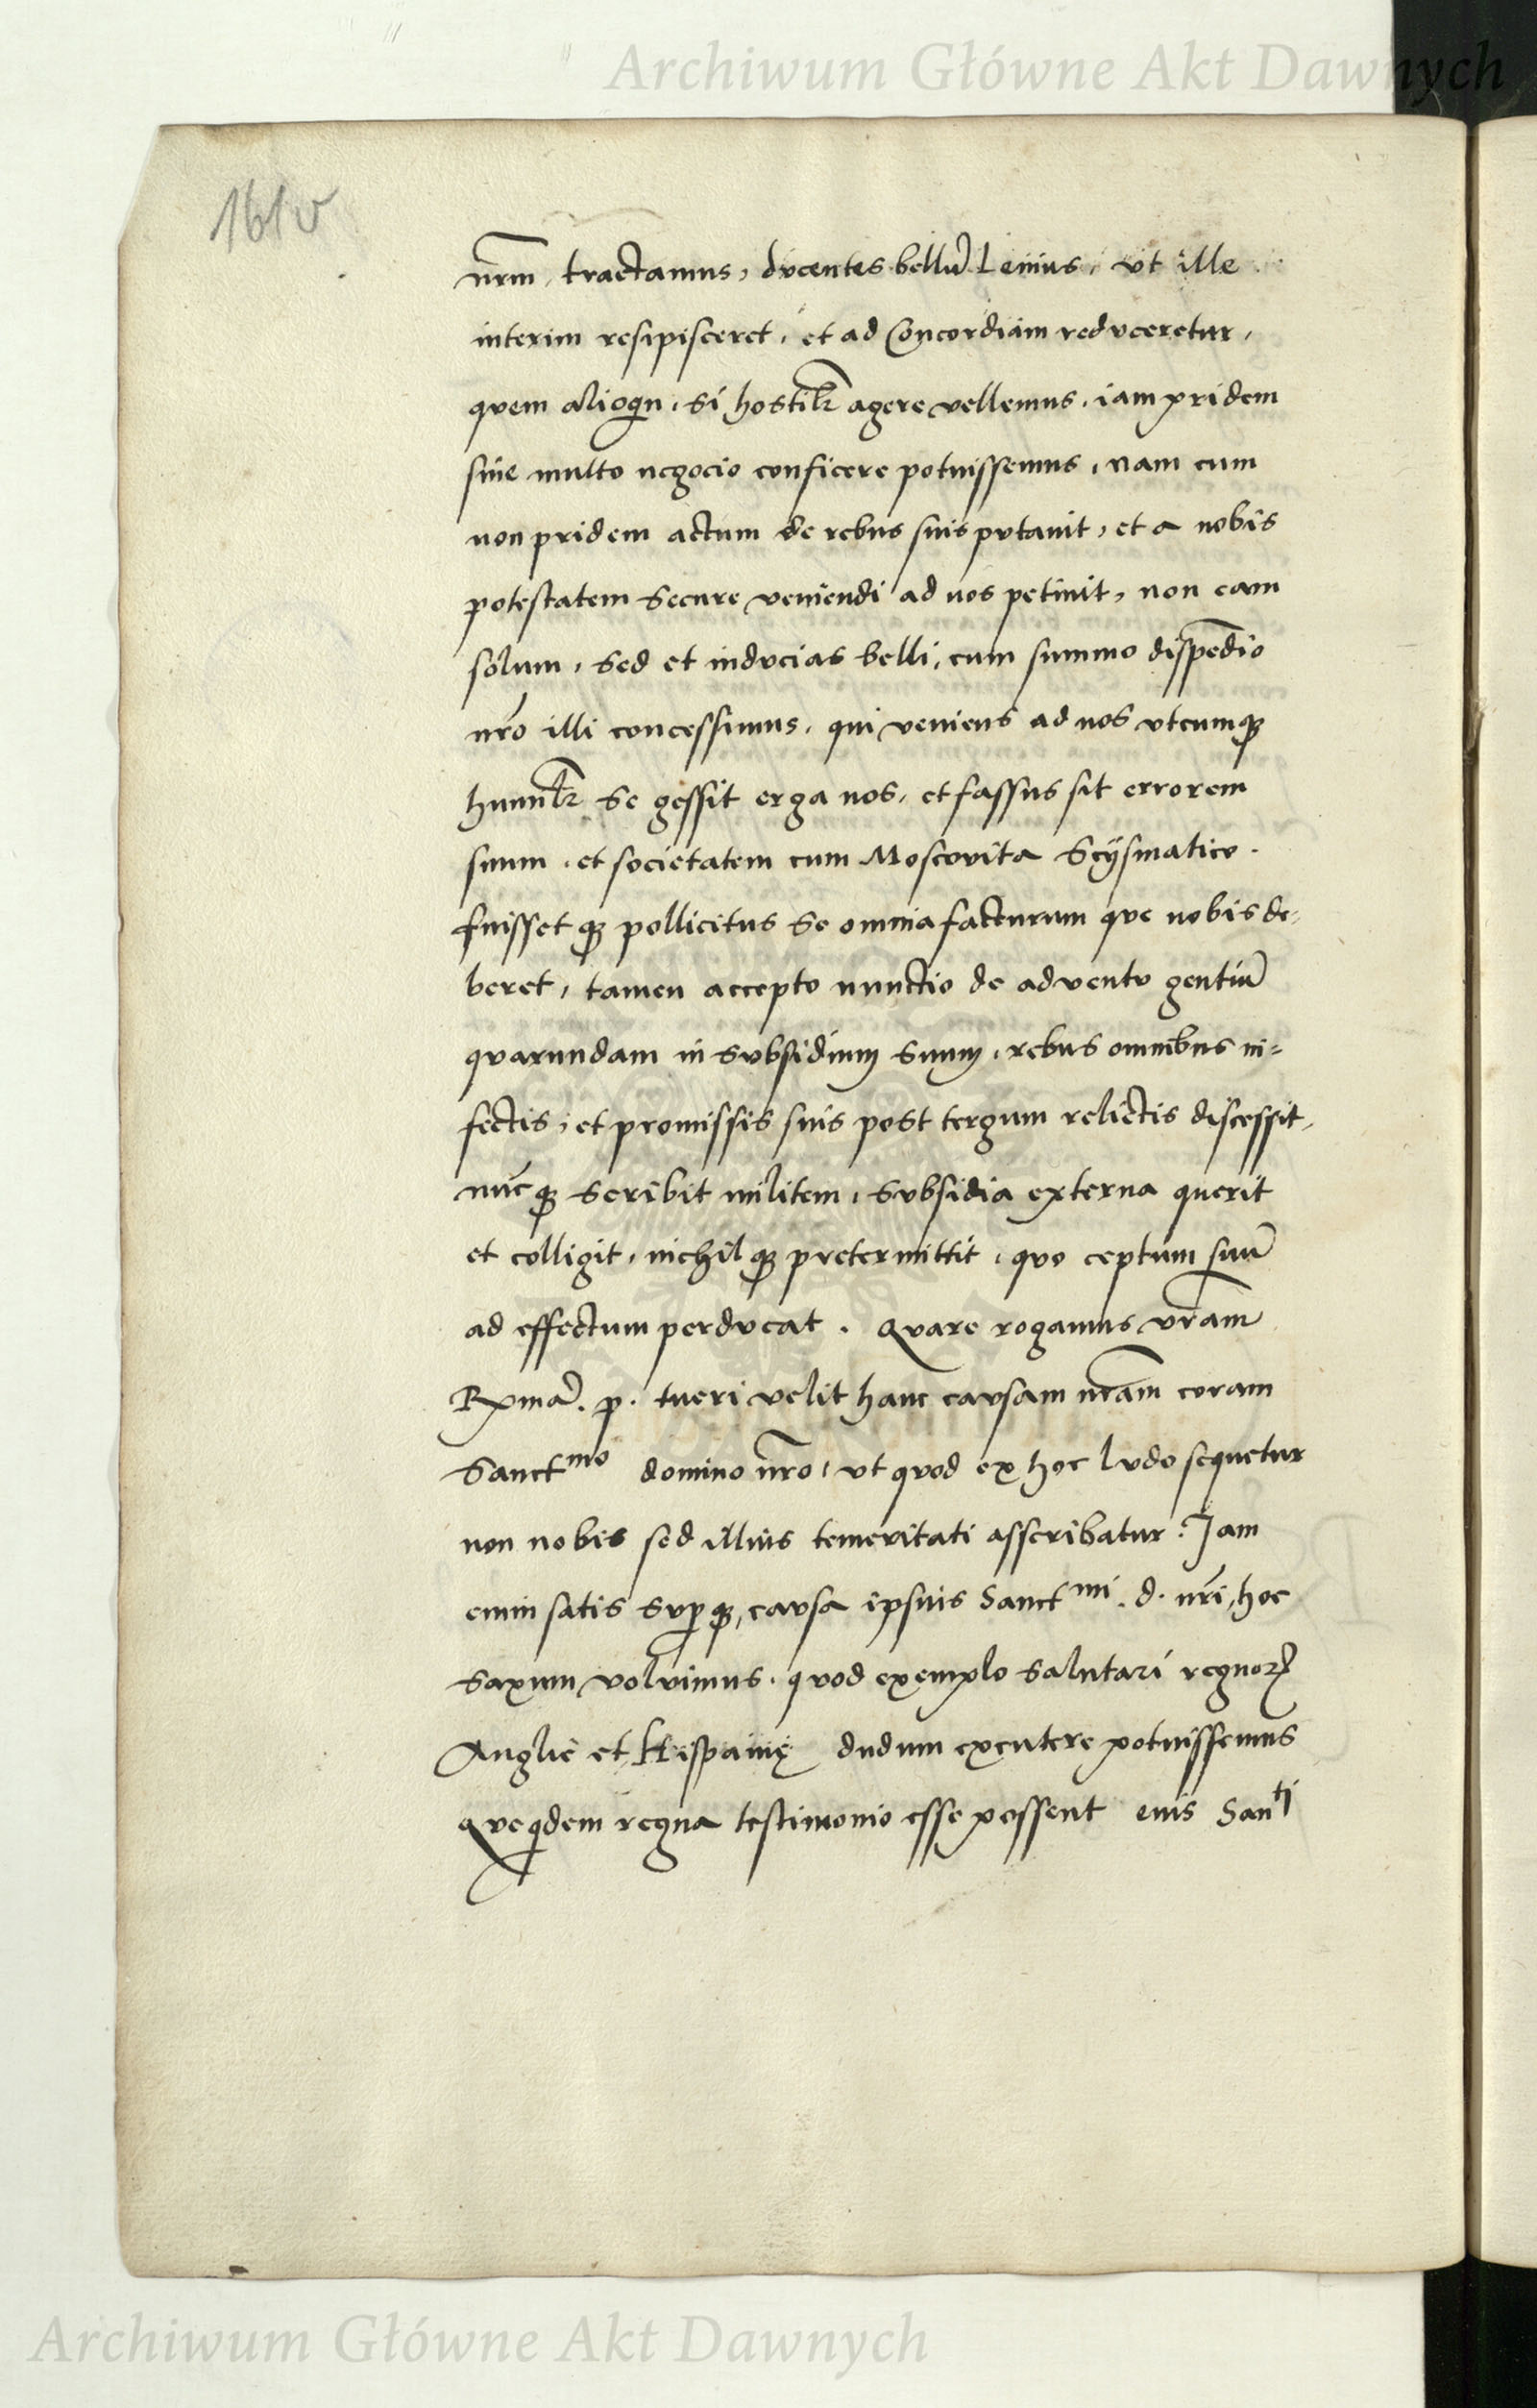 Archiwum Główne Akt Dawnych
161v
nr̃m, tractamus, dvcentes bellũ Lenius, vt ille
interim resipisceret, et ad Concordiam redvceretur,
qvem alioqn, si hostilr̃ agere vellemus, iam pridem
sine multo negocio conficere potuissemus, nam cum
non pridem actum de rebus suis pvtauit, et a nobis
potestatem Secure veniendi ad nos petiuit, non eam
solum, Sed et indvcias belli, cum summo dispẽdio
nr̃o illi concessimus, qui veniens ad nos vtcumqꝫ
humilr̃ Se gessit erga nos, et fassus sit errorem
suum, et societatem cum Moscovita Scÿsmatico.
fuissetqꝫ pollicitus Se omnia facturum qve nobis de-
beret, tamen accepto nunctio de adventv gentiũ
qvarundam in Svbsidium Suum, rebus omnibus in-
fectis, et promissis suis post tergum relictis discessit,
nũcqꝫ Scribit militem, Svbsidia externa querit
et colligit, nichilqꝫ pretermittit, qvo ceptum suũ
ad effectum perdvcat. Qvare rogamus vr̃am
Rxmã. p. tueri velit hanc cavsam nr̃am coram
Sanctmo domino nr̃o, vt qvod ex hoc lvdo sequetur
non nobis sed illius temeritati asscribatur. Jam
enim satis Svpqꝫ, cavsa ipsius Sanctmi. d. nr̃i, hoc
Saxum volvimus, qvod exemplo Salutari regnorꝫ
Anglie et Hispanię dudum excutere potuissemus
qveqdem regna testimonio esse possent eius Santj
Archiwum Główne Akt Dawnych